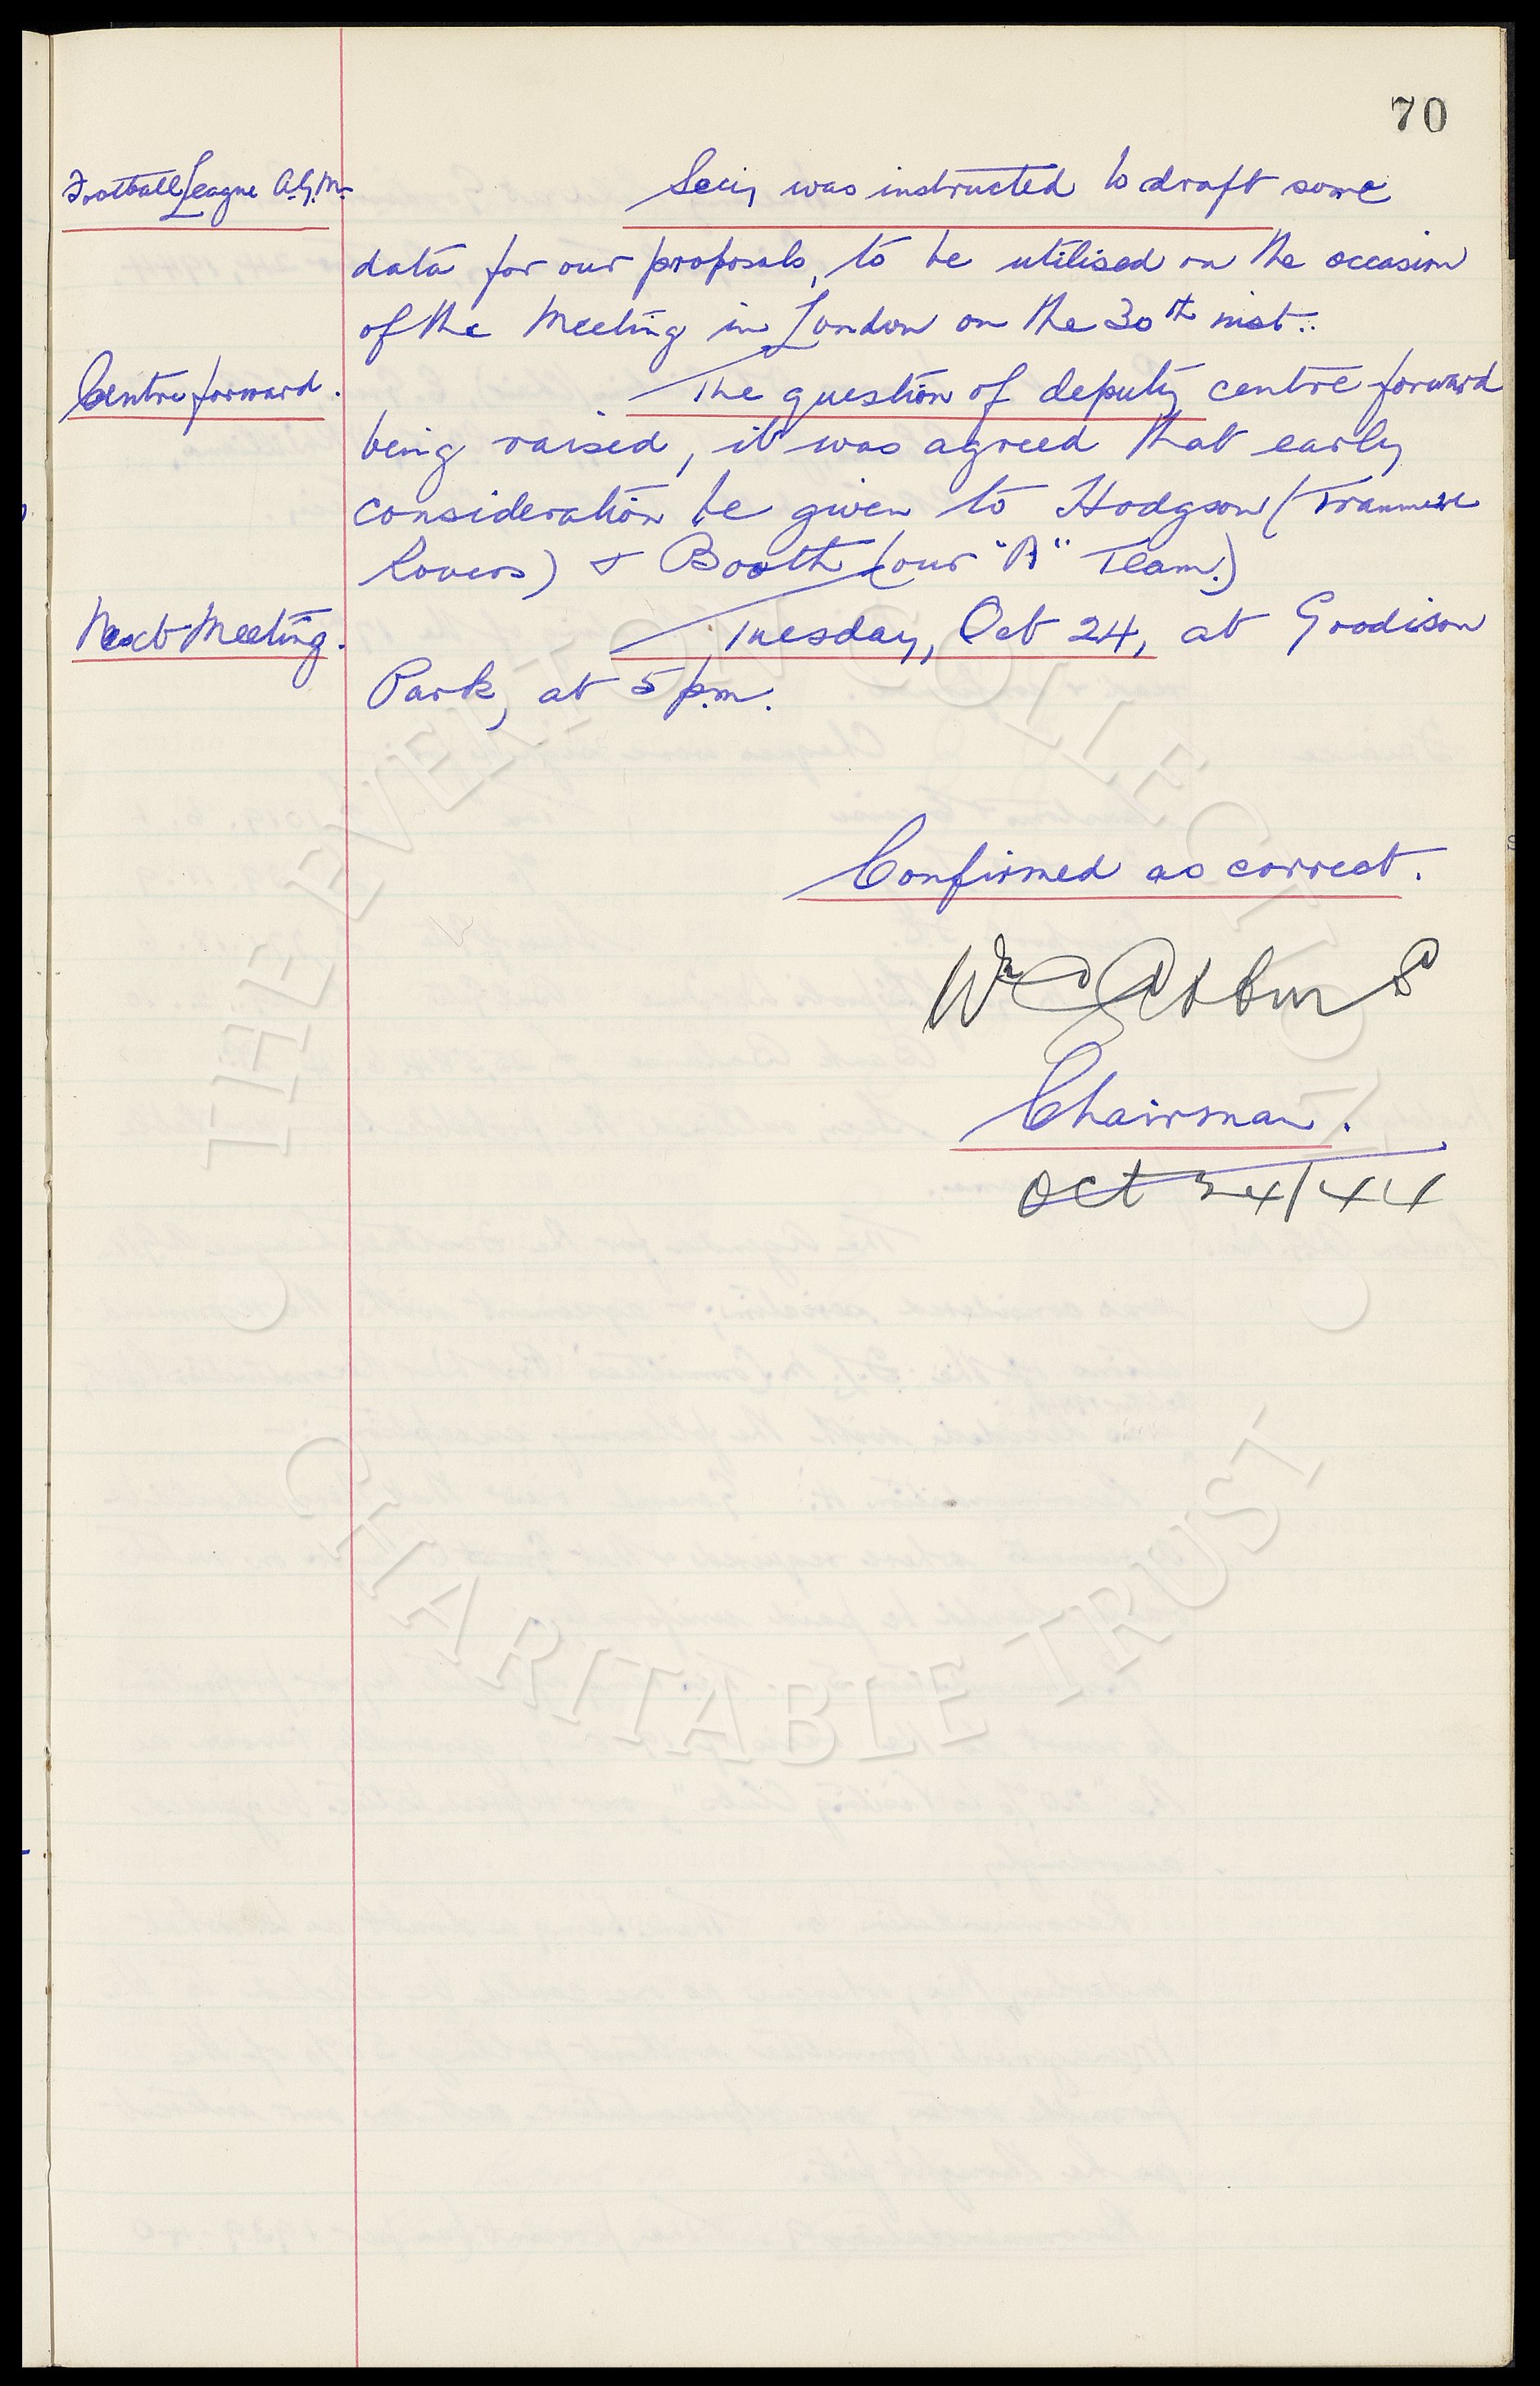 70
Football League A.G.M. Secy was instructed to draft some
data for our proposals, to be utilised on the occasion
of the Meeting in London on the 30th inst..
Centre forward. The question of deputy centre forward
being raised, it was agreed that early
consideration be given to Hodgson (Tranmere
Rovers) & Booth (our "A" Team.)
Next Meeting. Tuesday, Oct 24, at Goodison
Park, at 5 p.m.
Confirmed as correct.
Chairman.
Oct 24/44
THE EVERTON COLLECTION
CHARITABLE TRUST